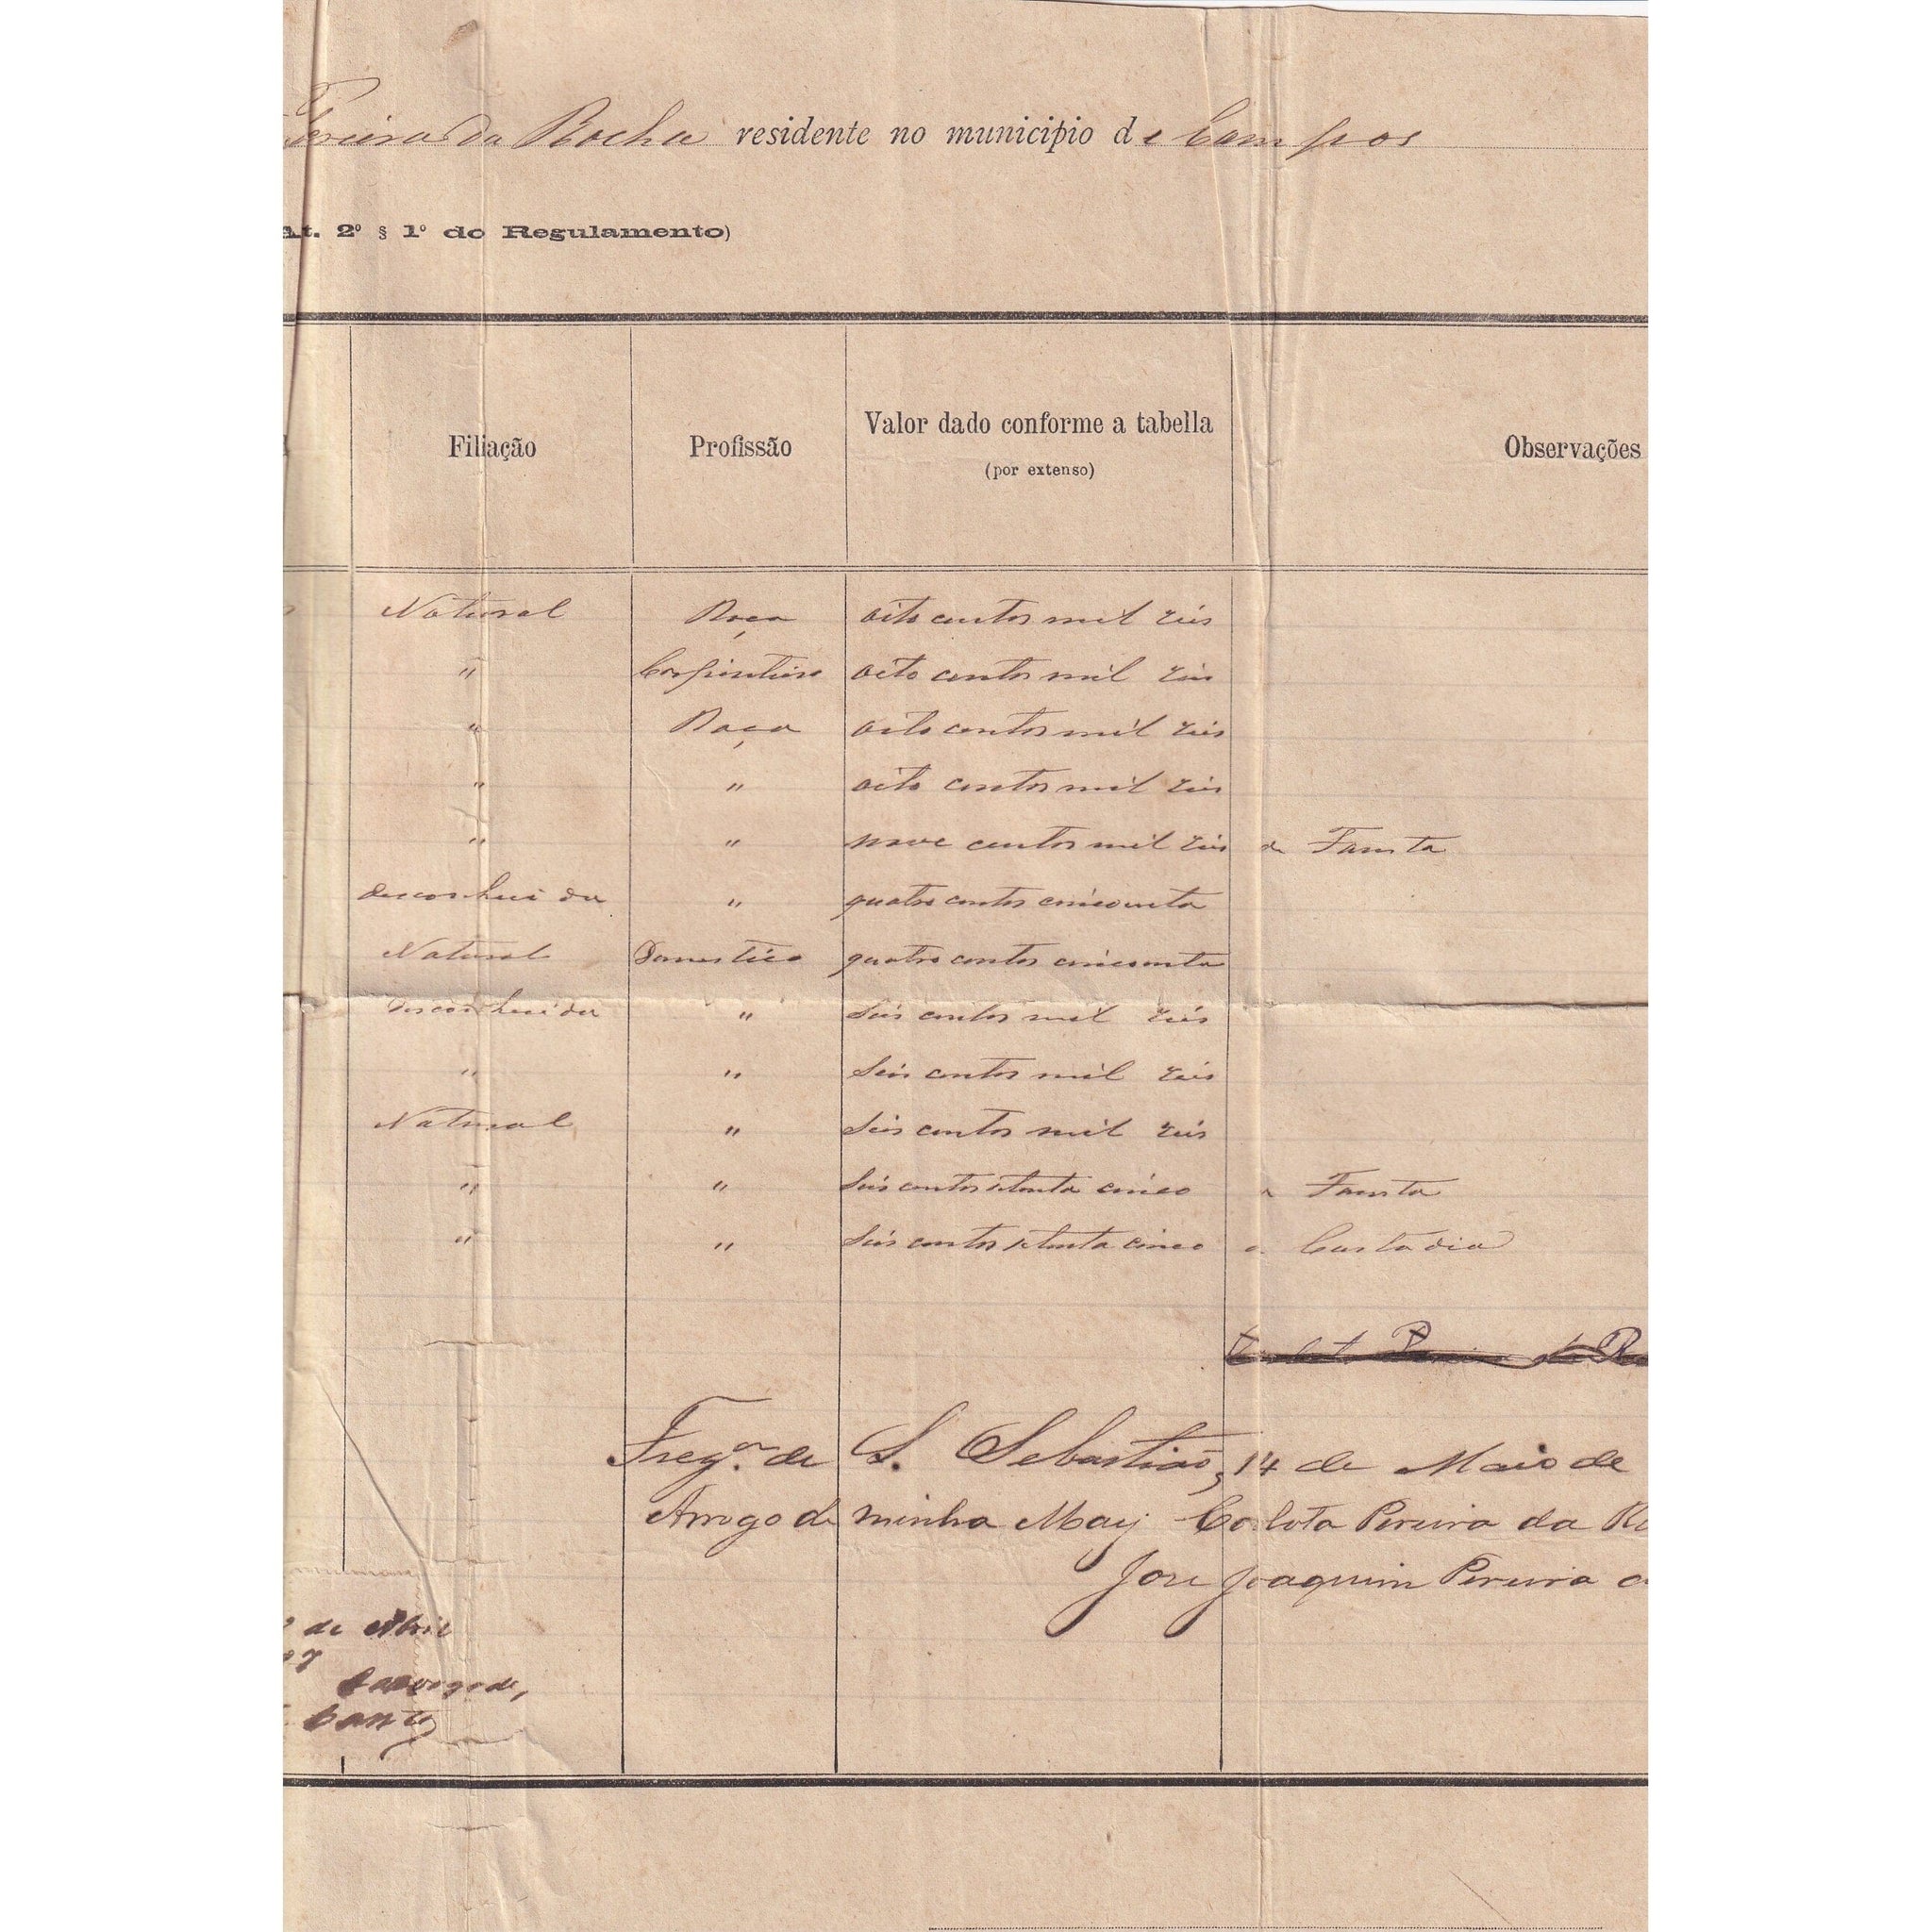 Pereira da Rocha residente no municipio de Campos
At. 2º § 1º do Regulamento)
Filiação Profissão Valor dado conforme a tabella Observações
(por extenso)
Natural Roça oito centos mil reis
" Carpinteiro oito centos mil reis
" Roça oito centos mil reis
" " oito centos mil reis
" " nove centos mil reis de Fausta
desconhecida " quatro centos cincoenta
Natural Domestico quatro centos cincoenta
desconhecida " seis centos mil reis
" " seis centos mil reis
Natural " seis centos mil reis
" " seis centos setenta cinco a Fausta
" " seis centos setenta cinco a Custodia
Freg.a de S. Sebastião, 14 de Maio de
Arrogo de minha May Carlota Pereira da Ro
Jose Joaquim Pereira d
de Abril